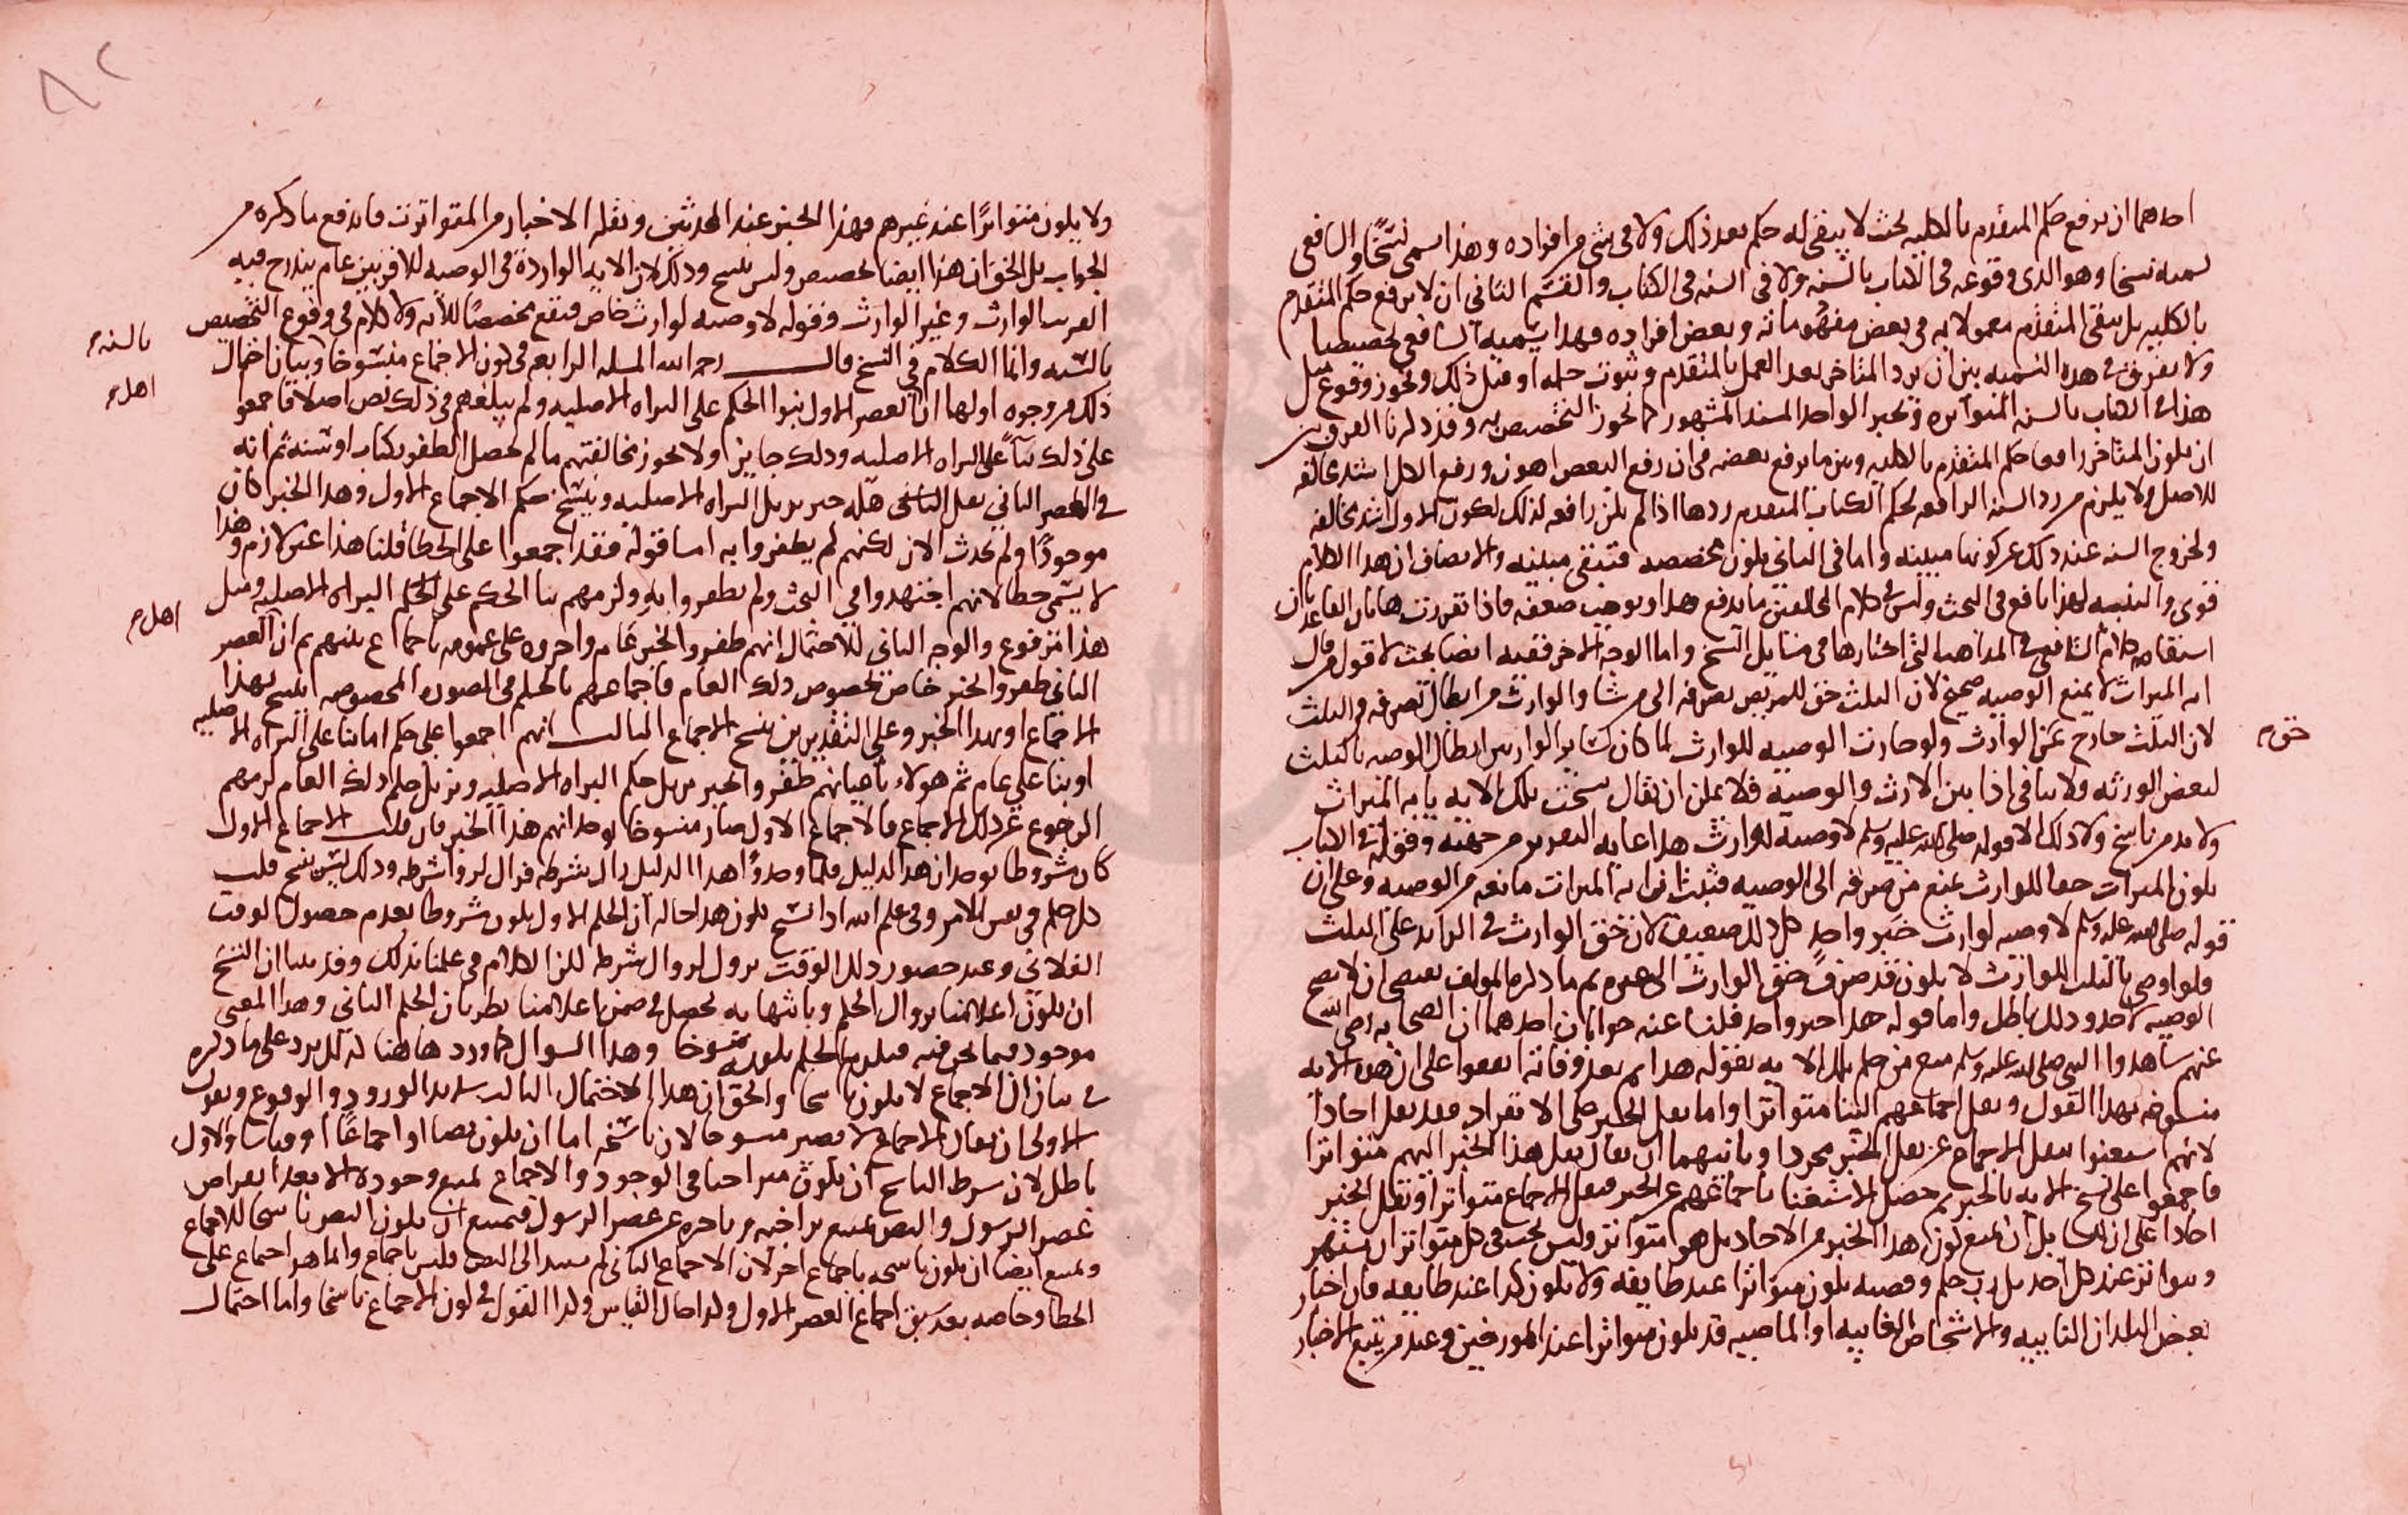 احدهما ان يرفع حكم المتقدم بالكليه بحيث لا يبقى له حكم بعد ذلك ولا فى شى من افراده وهذا اسمى نسخا والشافعى
يسميه نسخا وهو الذى وقوعه فى الكتاب بالسنه ولا فى السنه فى الكتاب والقسم الثانى ان لا يرفع حكم المتقدم
بالكليه بل يبقى المتقدم معمولا به فى بعض مفهوماته وبعض افراده فهذا يسميه الشافعى تخصيصا
ولا يفرق فى هذه التسميه بين ان يرد المتاخر بعد العمل بالمتقدم وثبوت حكمه او قبل ذلك ويجوز وقوع مثل
هذا فى الكتاب بالسنه المتواتره وبخبر الواحد المسند المشهور كما يجوز التخصيص به وقد ذكرنا الفرق بين
ان يكون المتاخر رافعا حكم المتقدم بالكليه وبين ما يرفع بعضه فى ان رفع البعض اهون ورفع الكل اشد مخالفه
للاصل ولا يلزم من رد السنه الرافعه لحكم الكتاب المتقدم ردها اذا لم يكن رافعه لذلك لكون الاول اشد مخالفه
ولخروج السنه عند ذلك عن كونها مبينه واما فى الثانى يكون مخصصه فتبقى مبينه والانصاف ان هذا الكلام
قوى والتنبيه لهذا نافع فى البحث وليس فى كلام المخالفين ما يدفع هذا ويوجب ضعفه فاذا تقررت هاتان القاعدتان
استقام كلام الشافعى فى المذاهب التى اختارها فى مسايل النسخ واما الوجه الاخر ففيه ايضا بحث لا قول من قال
ايه الميراث لا يمنع الوصيه صحيح لان الثلث حق للمريض يصرفه الى من شا والوارث من ابطال تصرفه فى الثلث
لان الثلث خارج عن الوارث ولو جازت الوصيه للوارث لما كان لساير الوارثين ابطال الوصيه بالثلث
حق م
لبعض الورثه ولا ينافى اذا بين الارث والوصيه فلا يمكن ان يقال نسخت تلك الايه بايه الميراث
ولا بد من ناسخ ولا ذلك الا قوله صلى الله عليه وسلم لا وصيه لوارث هذا غايه التقرير من جهته وقوله فى الكتاب
يكون الميراث حقا للوارث يمنع من صرفه الى الوصيه فثبت ان ايه الميراث مانعه من الوصيه وعلى ان
قوله صلى الله عليه وسلم لا وصيه لوارث خبر واحد كل ذلك ضعيف لان حق الوارث فى الزايد على الثلث
ولو اوصى بالثلث للوارث لا يكون قد صرف حق الوارث الى غيره ثم ما ذكره المولف يقتضى ان لا يصح
الوصيه لاحد وذلك باطل واما قوله هذا خبر واحد قلنا عنه جوابان احدهما ان الصحابه رضى الله
عنهم شاهدوا النبى صلى الله عليه وسلم منع من حكم تلك الايه بقوله هذا ثم بعد وفاته اتفقوا على ان هذه الايه
منسوخه بهذا القول ونقل اجماعهم الينا متواترا واما نقل الخبر على الانفراد فقد نقل احادا
لانهم استغنوا بنقل الاجماع عن نقل الخبر مجردا وثانيهما ان يقال نقل هذا الخبر اليهم متواترا
فاجمعوا على نسخ الايه بالخبر ثم حصل الاستغنا باجماعهم عن الخبر فنقل الاجماع متواترا ونقل الخبر
احادا على ان لقايل ان يمنع كون هذا الخبر من الاحاد بل هو متواتر وليس يجب فى كل متواتر ان يشتهر
ويتواتر عند كل احد بل رب حكم وقصيه يكون متواترا عند طايفه ولا يكون كذا عند طايفه فان اخبار
بعض البلدان النائيه والاشخاص الغايبه او الماضيه قد يكون متواترا عند المورخين وعند من يتتبع الاخبار
ولا يكون متواترا عند غيرهم فهذا الخبر عند المحدثين ونقله الاخبار من المتواترت فاندفع ما ذكره من
الجواب بل الحق ان هذا ايضا تخصيص وليس بنسخ وذلك لان الايه الوارده فى الوصيه للاقربين عام يندرج فيه
القريب الوارث وغير الوارث وقوله لا وصيه لوارث خاص فيقع مخصصا للايه ولا كلام فى وقوع التخصيص
بالسنه م
بالسنه وانما الكلام فى النسخ قال رحمه الله المسله الرابعه فى كون الاجماع منسوخا وبيان احتمال
ذلك من وجوه اولها ان اهل العصر الاول بنوا الحكم على البراه الاصليه ولم يبلغهم فى ذلك نص اصلا فاجمعوا
على ذلك بنا على البراه الاصليه وذلك جايزا ولا يجوز مخالفتهم ما لم يحصل الظفر بكتاب او سنه ثم انه
فى العصر الثانى نقل الناقلين خبر يزيل البراه الاصليه وينسخ حكم الاجماع الاول وهذا الخبر كان
موجودا ولم يحدث الان لكنهم لم يظفروا به اما قوله فقد اجمعوا على الخطا قلنا هذا غير لازم وهذا
لا يسمى خطا لانهم اجتهدوا فى البحث ولم يظفروا به ولزمهم بنا الحكم على الحكم البراه الاصليه ومثل
هذا مرفوع والوجه الثانى للاحتمال انهم ظفروا لخبر عام واجروه على عمومه باجماع بينهم ثم ان العصر
اهل م
الثانى ظفروا لخبر خاص بخصوص ذلك العام فاجماعهم بالحكم فى الصوره المخصوصه انتسخ بهذا
الاجماع او بهذا الخبر وعلى التقديرين نسخ الاجماع الثالث انهم اجمعوا على حكم اما بنا على البراه الاصليه
او بنا على عام ثم هولاء باعيانهم ظفروا لخبر يزيل حكم البراه الاصليه ويزيل حكم ذلك العام لزمهم
الرجوع عن ذلك الاجماع فالاجماع الاول صار منسوخا بوجدانهم هذا الخبر فان قلت الاجماع الاول
كان مشروطا بوجدان هذا الدليل فلما وجدوا هذا الدليل زال بشرطه فزال لزوال شرطه وذلك ليس بنسخ قلت
كل حكم فى نفس الامر وفى علم الله اذا نسخ يكون هذا حاله ان الحكم الاول يكون مشروطا بعدم حصول الوقت
الفلانى وعند حضور ذلك الوقت يزول لزوال شرطه لكن الكلام فى علمنا بذلك وقد بينا ان النسخ
ان يكون اعلامنا بزوال الحكم وبانتهايه يحصل فى ضمن اعلامنا بطريان الحكم الثانى وهذا المعنى
موجود فيما نحن فيه فيلزم الحكم بكونه منسوخا وهذا السوال كما ورد هاهنا له كل يرد على ما ذكره
فى بيان ان الاجماع لا يكون ناسخا والحق ان هذا الاحتمال الثالث الورود والوقوع ونقول
الاولى ان يقال الاجماع لا يصير منسوخا لان ناسخه اما ان يكون نصا او اجماعا او قياسا والاول
باطل لان شرط الناسخ ان يكون متراخيا فى الوجود والاجماع يمتنع وجوده الا بعد انقراض
عصر الرسول والنص يمتنع تراخيه وتاخره عن عصر الرسول فيمتنع ان يكون النص ناسخا للاجماع
ويمتنع ايضا ان يكون ناسخه باجماع اخر لان الاجماع الثانى لم يستند الى النص فليس باجماع وانما هو اجماع على
الخطا وخاصه بعد سبق اجماع العصر الاول وكذا حال القياس وكذا القول فى كون الاجماع ناسخا واما احتمال